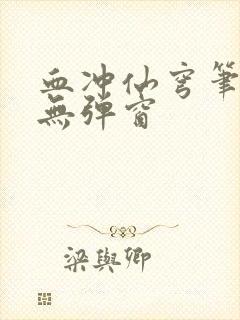 血冲仙穹筆
無彈窗
梁與卿